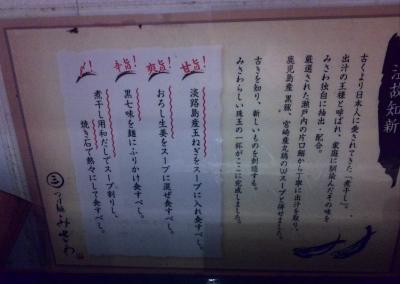 温故知新
古くより日本人に愛されてきた「煮干し」。
出汁の王様と呼ばれ、家庭に馴染んだその味を
みさわ独自に抽出・配合。
厳選された瀬戸内の片口鰯から丁寧に出汁を取り、
鹿児島産 黒豚、宮崎産丸鶏のWスープと併せました。
古きを知り、新しいものを創造する。
みさわらしい珠玉の一杯がここに完成しました。
甘旨!
淡路島産玉ねぎをスープに入れ食すべし。
爽旨!
おろし生姜をスープに混ぜ食すべし。
辛旨!
黒七味を麺にふりかけ食すべし。
〆!
煮干し用和だしでスープ割りし、
焼き石で熱々にして食すべし。
みさわ